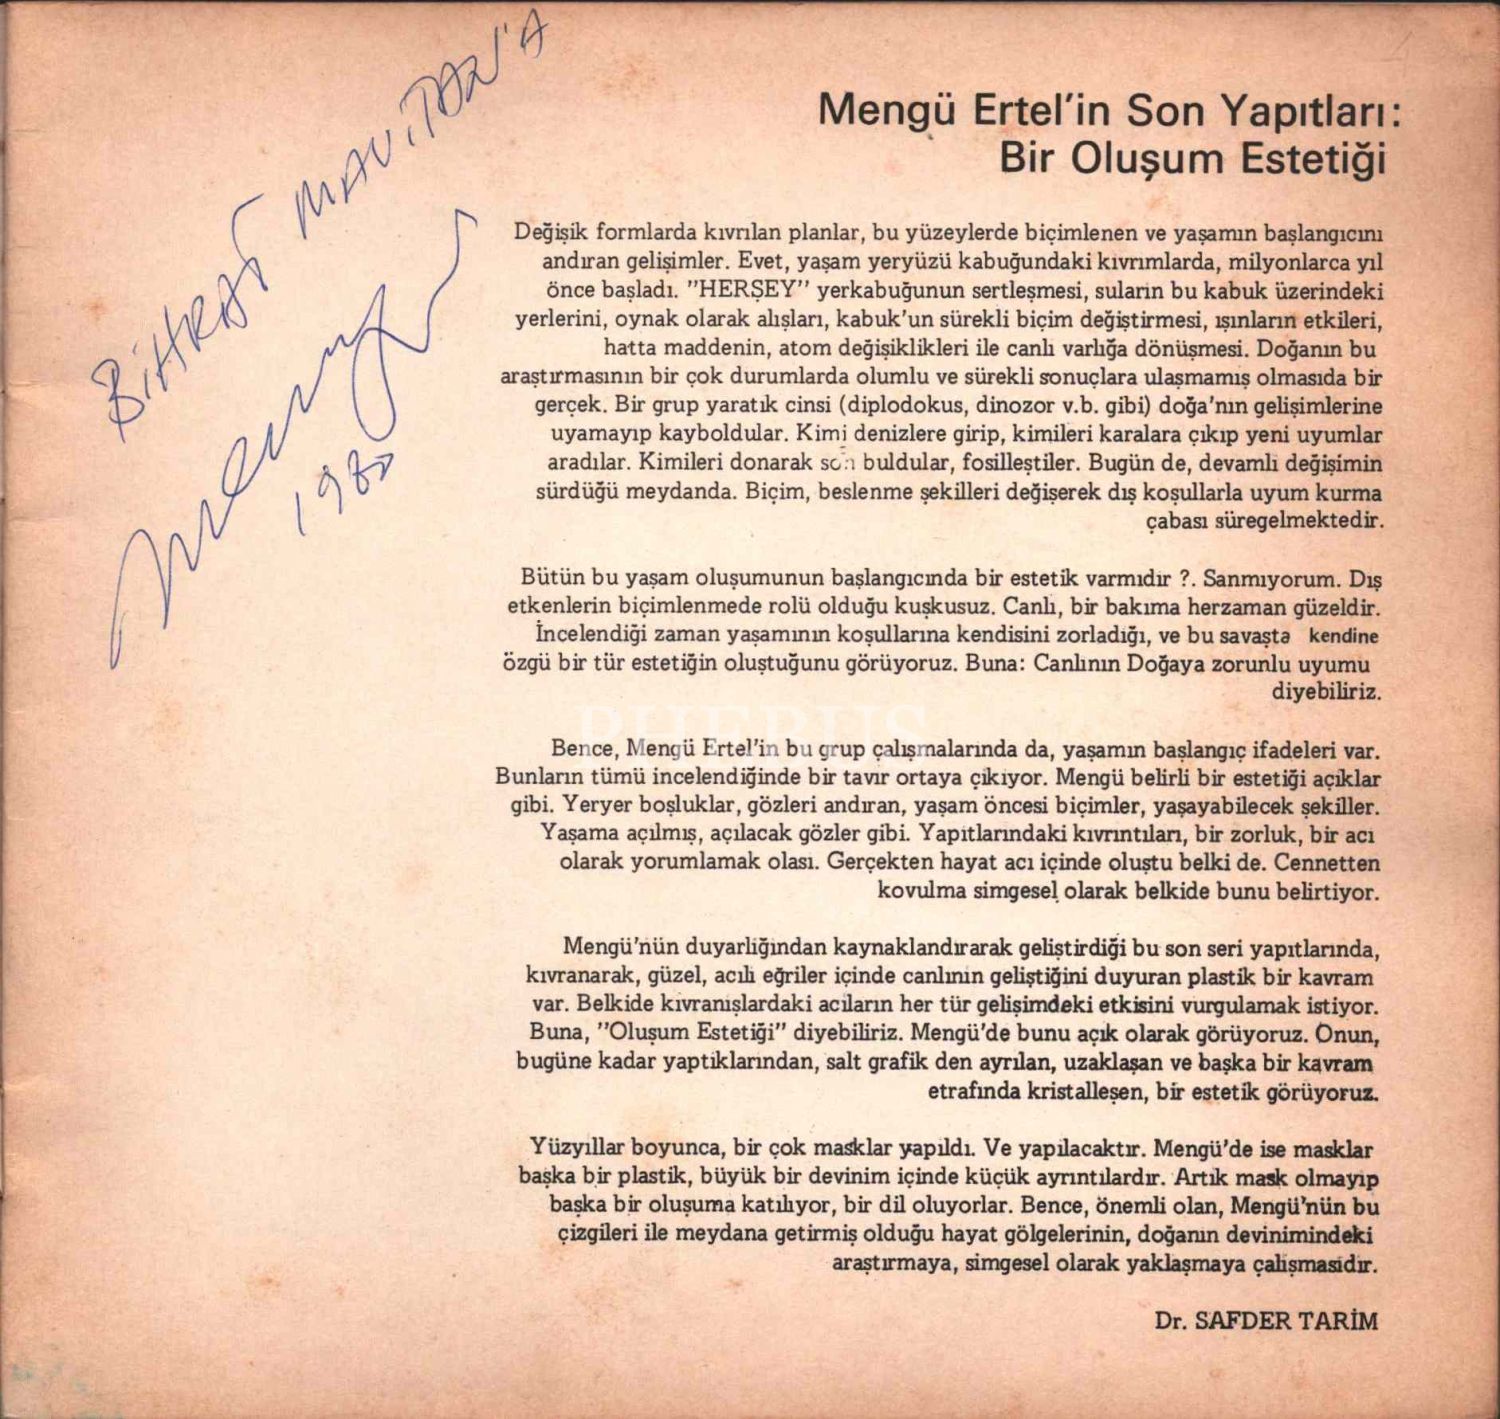 BİHRAT MAVİTAN'A
Mengü
1980
Mengü Ertel'in Son Yapıtları:
Bir Oluşum Estetiği
Değişik formlarda kıvrılan planlar, bu yüzeylerde biçimlenen ve yaşamın başlangıcını
andıran gelişimler. Evet, yaşam yeryüzü kabuğundaki kıvrımlarda, milyonlarca yıl
önce başladı. "HERŞEY" yerkabuğunun sertleşmesi, suların bu kabuk üzerindeki
yerlerini, oynak olarak alışları, kabuk'un sürekli biçim değiştirmesi, ışınların etkileri,
hatta maddenin, atom değişiklikleri ile canlı varlığa dönüşmesi. Doğanın bu
araştırmasının bir çok durumlarda olumlu ve sürekli sonuçlara ulaşmamış olmasıda bir
gerçek. Bir grup yaratık cinsi (diplodokus, dinozor v.b. gibi) doğa'nın gelişimlerine
uyamayıp kayboldular. Kimi denizlere girip, kimileri karalara çıkıp yeni uyumlar
aradılar. Kimileri donarak son buldular, fosilleştiler. Bugün de, devamlı değişimin
sürdüğü meydanda. Biçim, beslenme şekilleri değişerek dış koşullarla uyum kurma
çabası süregelmektedir.
Bütün bu yaşam oluşumunun başlangıcında bir estetik varmıdır ?. Sanmıyorum. Dış
etkenlerin biçimlenmede rolü olduğu kuşkusuz. Canlı, bir bakıma herzaman güzeldir.
İncelendiği zaman yaşamının koşullarına kendisini zorladığı, ve bu savaşta kendine
özgü bir tür estetiğin oluştuğunu görüyoruz. Buna: Canlının Doğaya zorunlu uyumu
diyebiliriz.
PHEBUS
Bence, Mengü Ertel'in bu grup çalışmalarında da, yaşamın başlangıç ifadeleri var.
Bunların tümü incelendiğinde bir tavır ortaya çıkıyor. Mengü belirli bir estetiği açıklar
gibi. Yeryer boşluklar, gözleri andıran, yaşam öncesi biçimler, yaşayabilecek şekiller.
Yaşama açılmış, açılacak gözler gibi. Yapıtlarındaki kıvrıntıları, bir zorluk, bir acı
olarak yorumlamak olası. Gerçekten hayat acı içinde oluştu belki de. Cennetten
kovulma simgesel olarak belkide bunu belirtiyor.
Mengü'nün duyarlığından kaynaklandırarak geliştirdiği bu son seri yapıtlarında,
kıvranarak, güzel, acılı eğriler içinde canlının geliştiğini duyuran plastik bir kavram
var. Belkide kıvranışlardaki acıların her tür gelişimdeki etkisini vurgulamak istiyor.
Buna, "Oluşum Estetiği" diyebiliriz. Mengü'de bunu açık olarak görüyoruz. Onun,
bugüne kadar yaptıklarından, salt grafik den ayrılan, uzaklaşan ve başka bir kavram
etrafında kristalleşen, bir estetik görüyoruz.
Yüzyıllar boyunca, bir çok masklar yapıldı. Ve yapılacaktır. Mengü'de ise masklar
başka bir plastik, büyük bir devinim içinde küçük ayrıntılardır. Artık mask olmayıp
başka bir oluşuma katılıyor, bir dil oluyorlar. Bence, önemli olan, Mengü'nün bu
çizgileri ile meydana getirmiş olduğu hayat gölgelerinin, doğanın devinimindeki
araştırmaya, simgesel olarak yaklaşmaya çalışmasıdır.
Dr. SAFDER TARİM